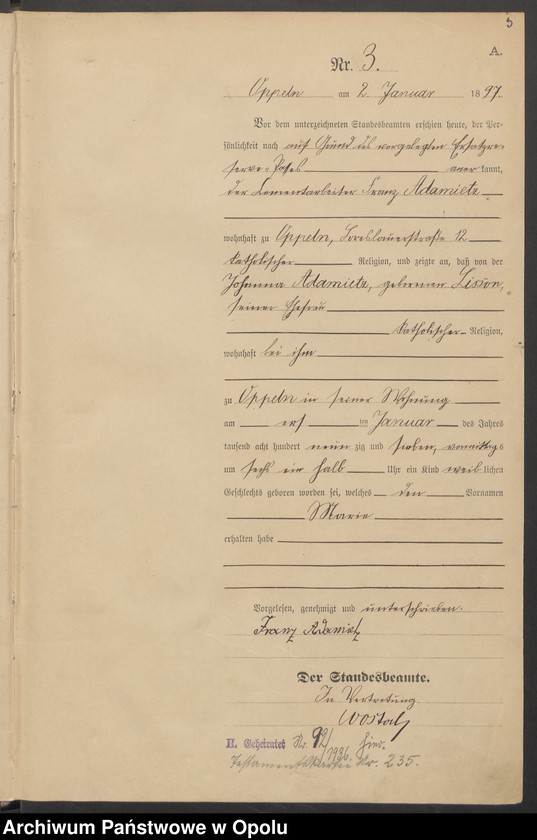 5
A.
Nr. 3.
Oppeln am 2. Januar 1897.
Vor dem unterzeichneten Standesbeamten erschien heute, der Per-
sönlichkeit nach auf Grund des vorgelegten Ersatzre-
serve-Passes anerkannt,
der Cementarbeiter Franz Adamietz
wohnhaft zu Oppeln, Breslauerstraße 12
katholischer Religion, und zeigte an, daß von der
Johanna Adamietz, geborenen Lisson,
seiner Ehefrau
katholischer Religion,
wohnhaft bei ihm
zu Oppeln in seiner Wohnung
am ersten Januar des Jahres
tausend acht hundert neunzig und sieben, vormittags
um sechs ein halb Uhr ein Kind weiblichen
Geschlechts geboren worden sei, welches den Vornamen
Marie
erhalten habe
Vorgelesen, genehmigt und unterschrieben.
Franz Adamietz
Der Standesbeamte.
In Vertretung
Wostal
II. Geheiratet Nr. 92/1936 hier.
Testamentskartei Nr. 235.
Archiwum Państwowe w Opolu